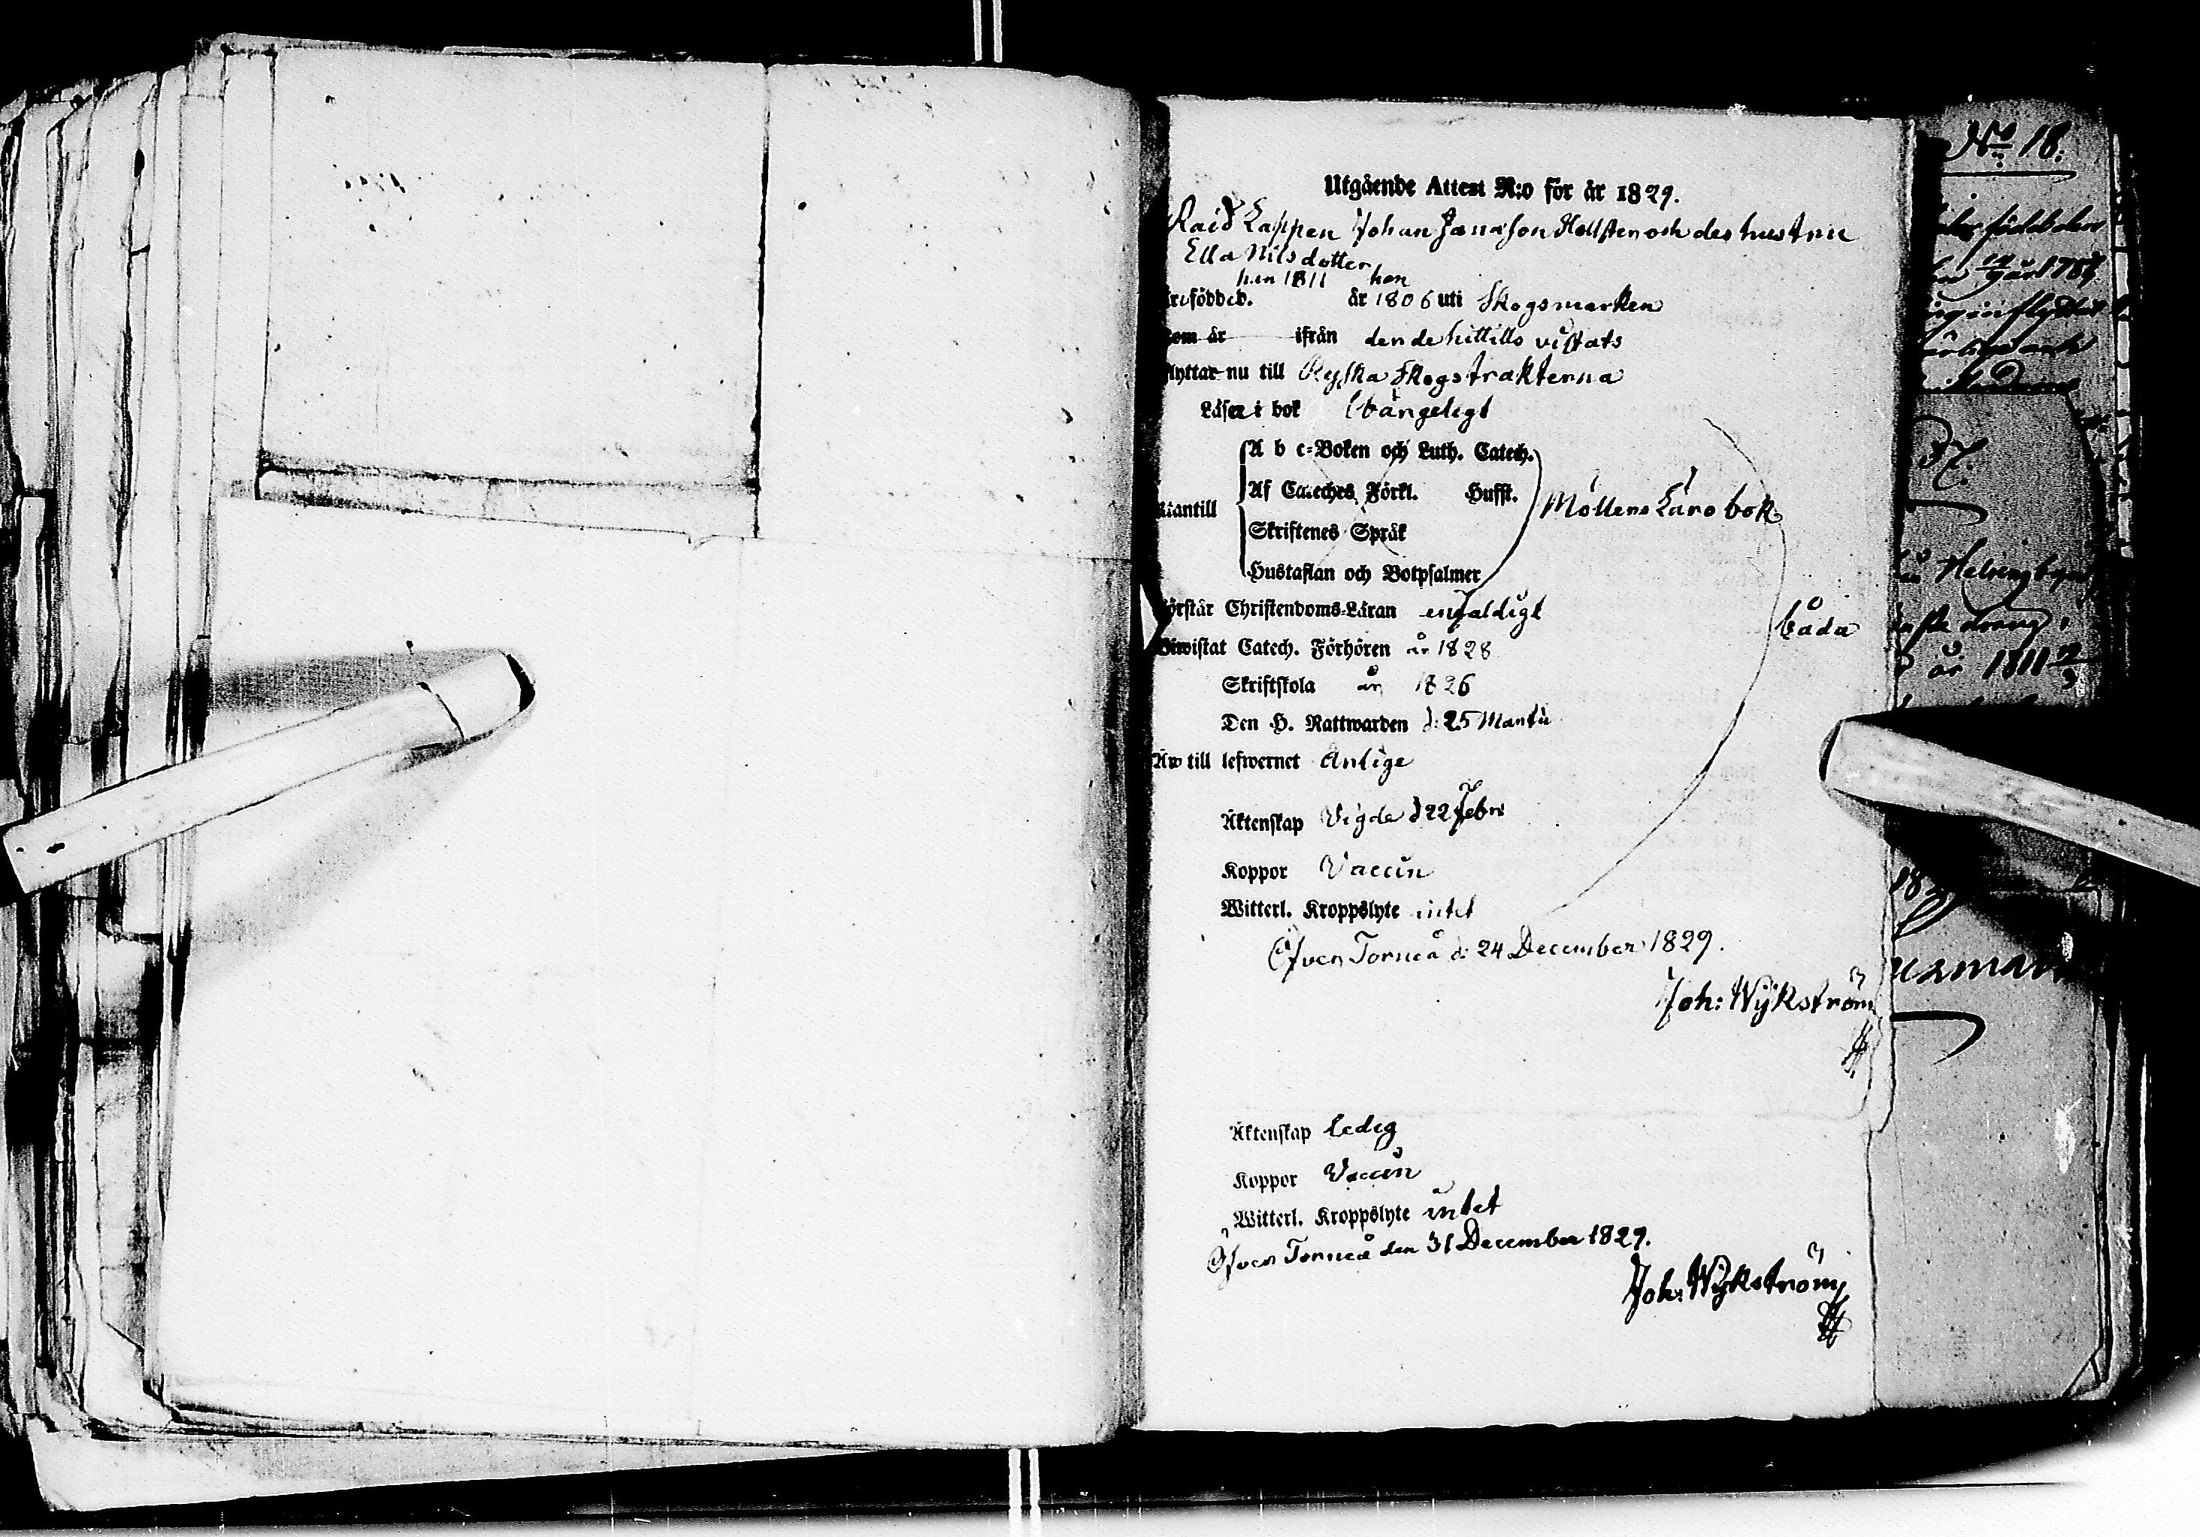 Utgående Attest N:o för år 1829.
Raid Lappen Johan Jönsson Hellsten och des hustru
Ella Nilsdotter
hon 1811 han
födded. år 1806 uti Skogsmarken
som år ifrån den de hittills vistats
flyttar nu till Ryska Skogstrakterna
Läser i bok
A b c-Boken och Luth. Catech.
Af Cateches Förkl. Hufft.
Utantill Möllers Läro bok
Skriftenes Språk
Hustaflan och Botpsalmer
Förstår Christendoms-Läran enfaldigt
Båda
Biwistat Catech. Förhören år 1828
Skriftskola år 1826
Den H. Nattwarden d: 25 Martii
Äro till lefwernet Ärlige
Äktenskap Vigde d 22 Febr
Koppor Vaccin
Witterl. Kroppslyte intet
Öfver Torneå d: 24 December 1829.
Joh: Wijkström
Äktenskap Ledig
Koppor Vaccin
Witterl. Kroppslyte intet
Öfver Torneå den 31 December 1829.
Joh: Wijkström
No 18.
född den
år 178
Helsingbyn
dräng,
år 1811